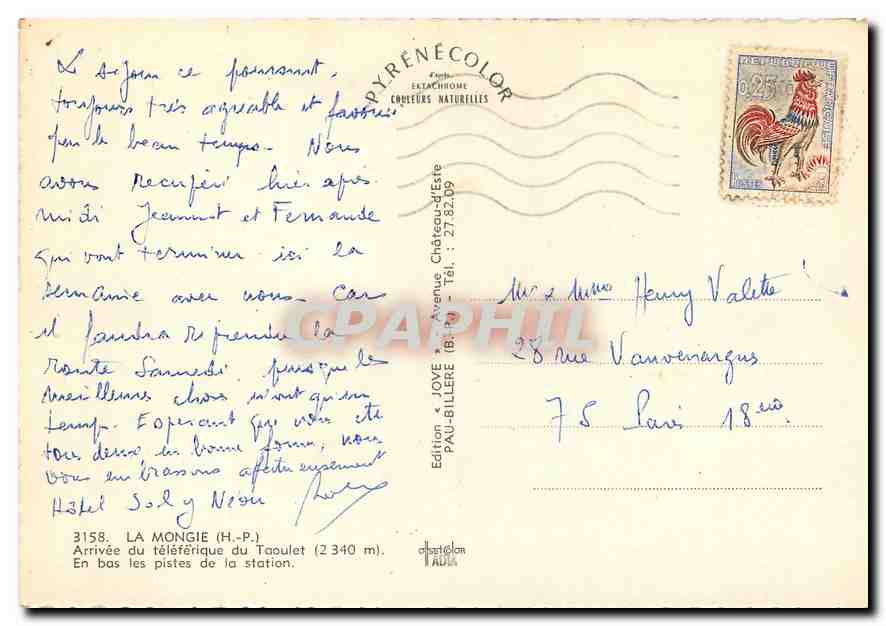 Le séjour ce poursuit,
toujours très agréable et favori
par le beau temps. Nous
avons recupéré hier après
midi Jeannot et Fernande
qui vont terminer ici la
semaine avec nous. Car
il faudra reprendre la
route Samedi, puisque les
meilleures choses n'ont qu'un
temp. Esperant que vous ete
tous deux en bonne forme, nous
vous embrassons afectueusement
Hôtel Sol y Néou
3158. LA MONGIE (H.-P.)
Arrivée du téléférique du Taoulet (2 340 m).
En bas les pistes de la station.
PYRÉNÉCOLOR
d'après
EKTACHROME
COULEURS NATURELLES
Edition « JOVE » Avenue Château-d'Este
PAU-BILLERE (B.-P.) - Tél. : 27.82.09
offsetcolor
ADIA
REPUBLIQUE FRANÇAISE
0,25
POSTES
Mr & Mme Henry Valette
28 rue Vauvenargues
75 Paris 18eme
CPAPHIL